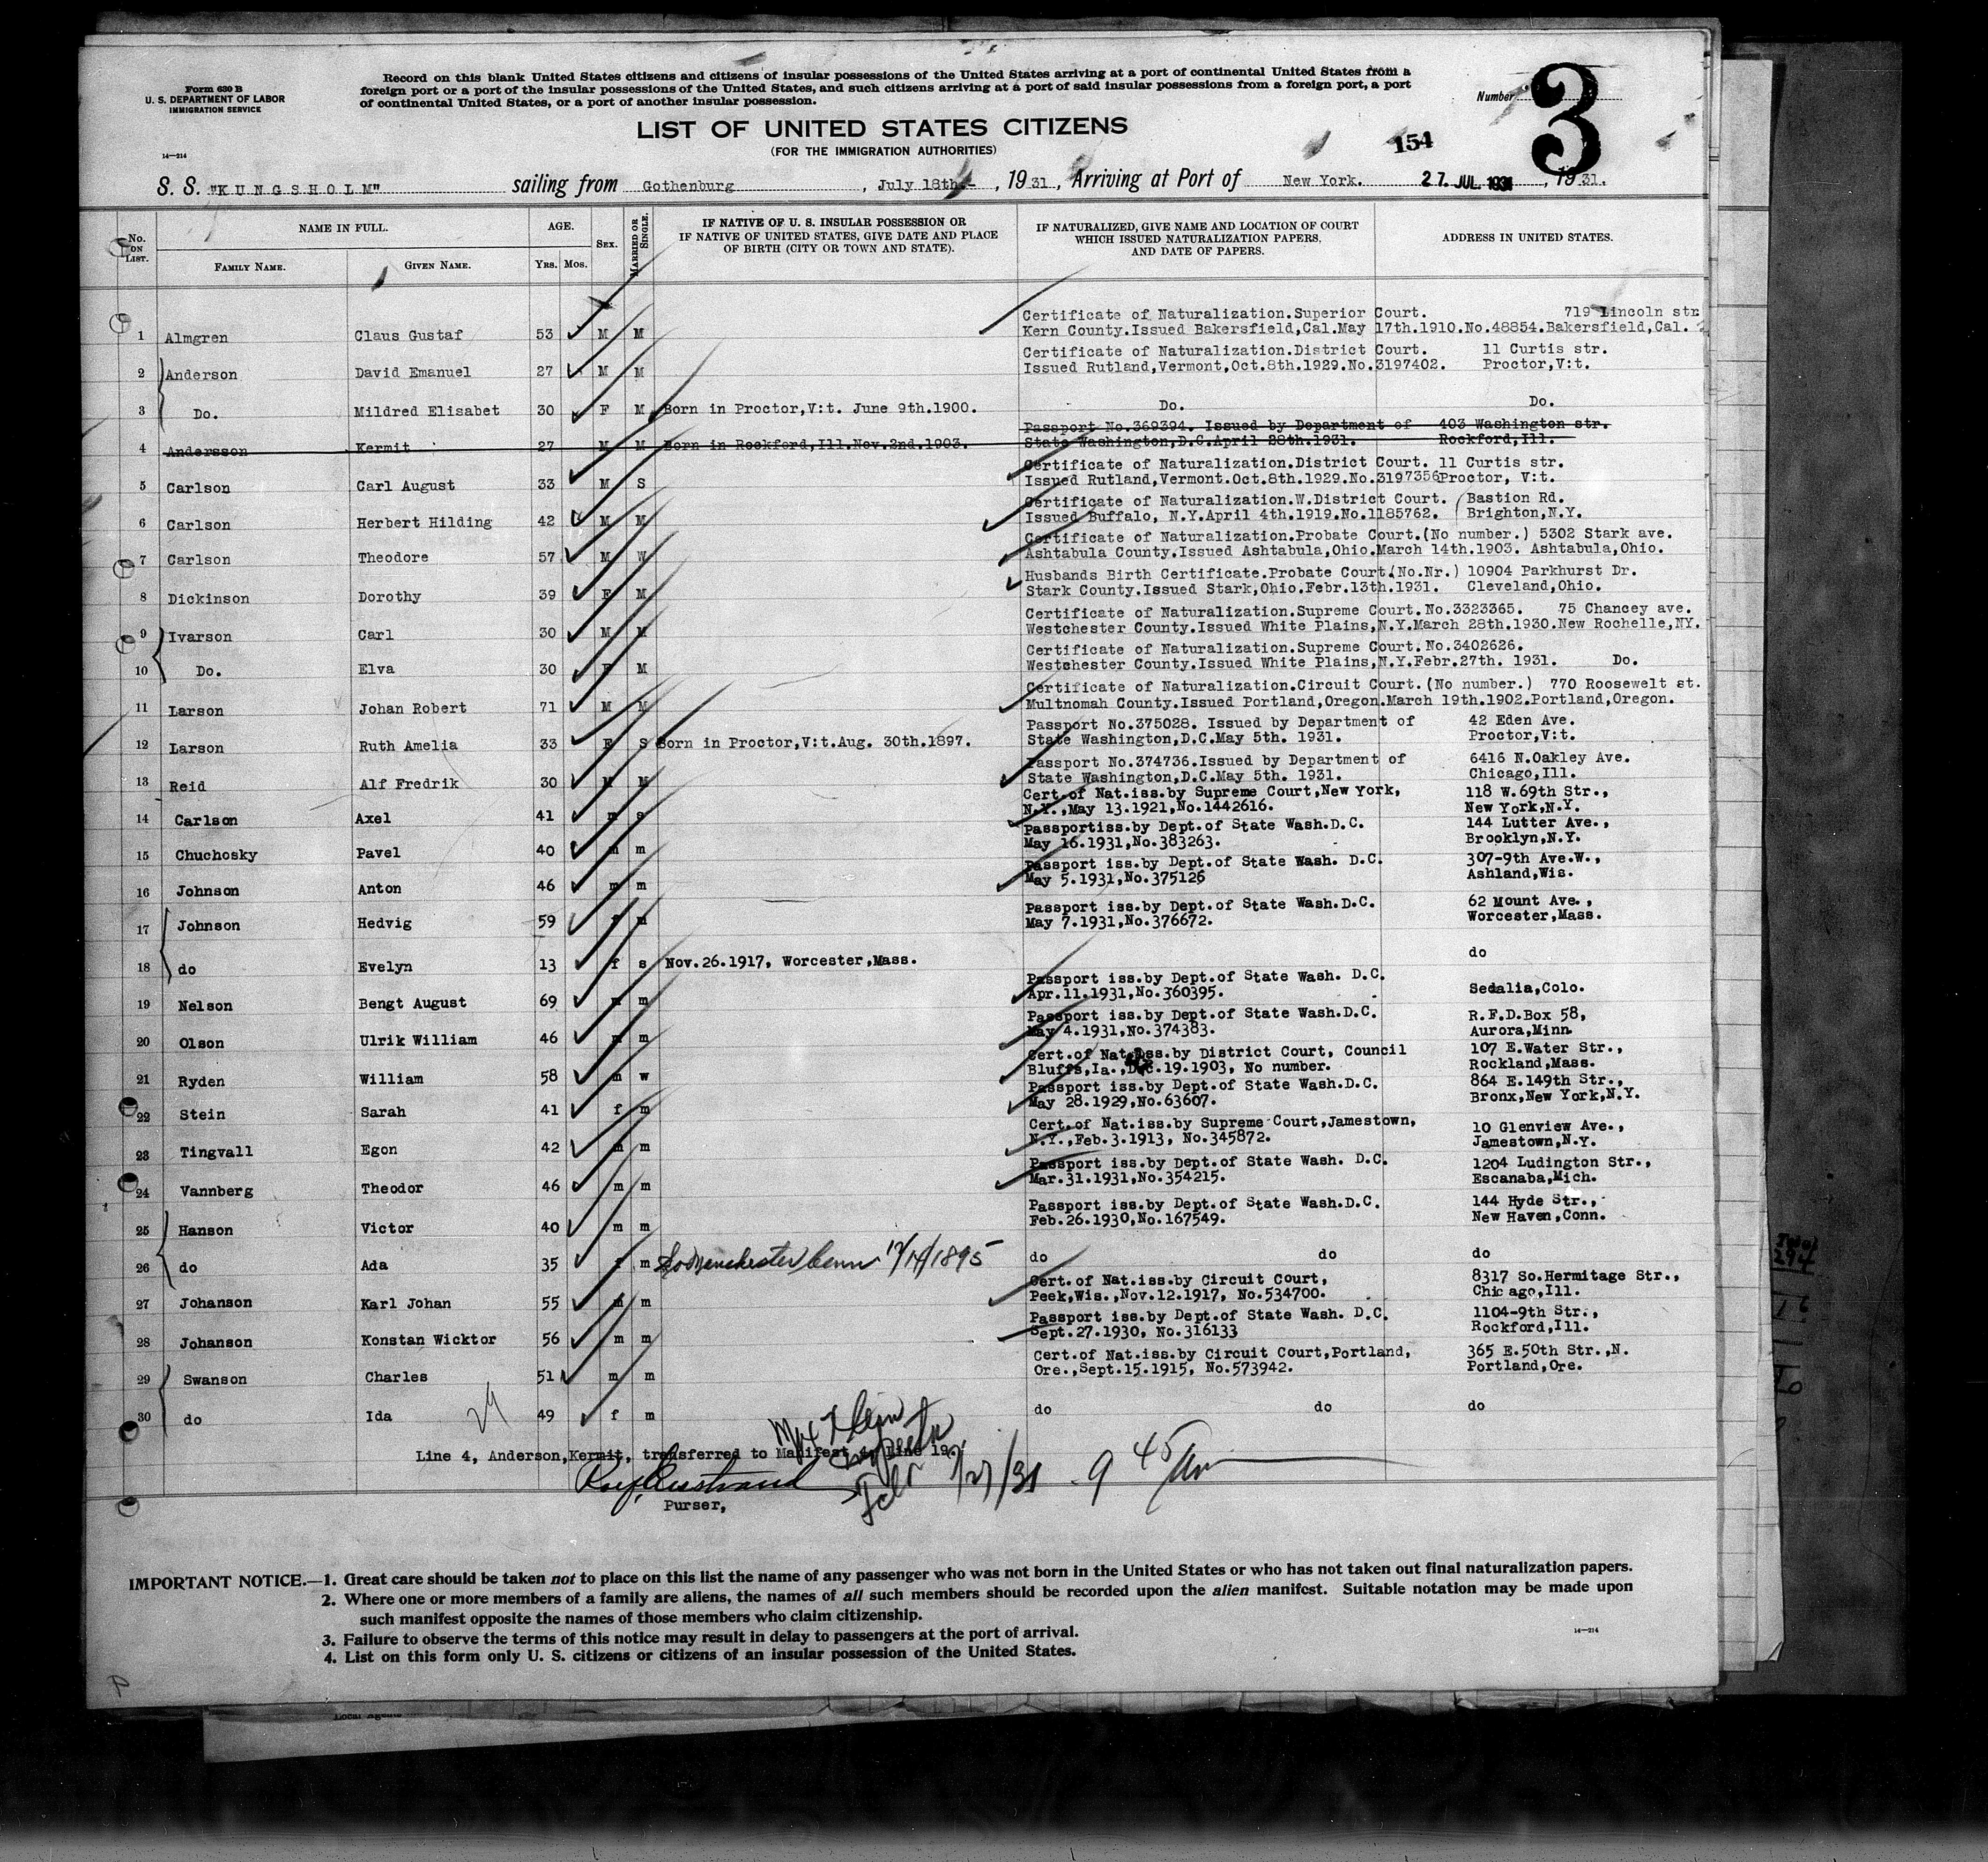 Form 630 B
U. S. DEPARTMENT OF LABOR
IMMIGRATION SERVICE
14—214
Record on this blank United States citizens and citizens of insular possessions of the United States arriving at a port of continental United States from a
foreign port or a port of the insular possessions of the United States, and such citizens arriving at a port of said insular possessions from a foreign port, a port
of continental United States, or a port of another insular possession.
Number 3
LIST OF UNITED STATES CITIZENS
(FOR THE IMMIGRATION AUTHORITIES)
154
S. S. "KUNGSHOLM" sailing from Gothenburg, July 18th.-, 1931, Arriving at Port of New York. 27. JUL. 1931, 1931.
No. ON LIST. NAME IN FULL. AGE. SEX. MARRIED OR SINGLE. IF NATIVE OF U. S. INSULAR POSSESSION OR IF NATIVE OF UNITED STATES, GIVE DATE AND PLACE OF BIRTH (CITY OR TOWN AND STATE). IF NATURALIZED, GIVE NAME AND LOCATION OF COURT WHICH ISSUED NATURALIZATION PAPERS, AND DATE OF PAPERS. ADDRESS IN UNITED STATES.
FAMILY NAME. GIVEN NAME. YRS. MOS.
Certificate of Naturalization.Superior Court. 719 Lincoln str
1 Almgren Claus Gustaf 53 M M Kern County.Issued Bakersfield,Cal.May 17th.1910.No.48854.Bakersfield,Cal.
Certificate of Naturalization.District Court. 11 Curtis str.
2 Anderson David Emanuel 27 M M Issued Rutland,Vermont,Oct.8th.1929.No.3197402. Proctor,V:t.
3 Do. Mildred Elisabet 30 F M Born in Proctor,V:t. June 9th.1900. Do. Do.
Passport No.369394. Issued by Department of 403 Washington str.
4 Andersson Kermit 27 M M Born in Rockford,Ill.Nov.2nd.1903. State Washington,D.C.April 28th.1931. Rockford,Ill.
Certificate of Naturalization.District Court. 11 Curtis str.
5 Carlson Carl August 33 M S Issued Rutland,Vermont.Oct.8th.1929.No.3197356Proctor, V:t.
Certificate of Naturalization.W.District Court. Bastion Rd.
6 Carlson Herbert Hilding 42 M M Issued Buffalo, N.Y.April 4th.1919.No.1185762. Brighton,N.Y.
Certificate of Naturalization.Probate Court.(No number.) 5302 Stark ave.
7 Carlson Theodore 57 M W Ashtabula County.Issued Ashtabula,Ohio.March 14th.1903. Ashtabula,Ohio.
Husbands Birth Certificate.Probate Court.(No.Nr.) 10904 Parkhurst Dr.
8 Dickinson Dorothy 39 F M Stark County.Issued Stark,Ohio.Febr.13th.1931. Cleveland,Ohio.
Certificate of Naturalization.Supreme Court.No.3323365. 75 Chancey ave.
9 Ivarson Carl 30 M M Westchester County.Issued White Plains,N.Y.March 28th.1930.New Rochelle,NY.
Certificate of Naturalization.Supreme Court.No.3402626.
10 Do. Elva 30 F M Westchester County.Issued White Plains,N.Y.Febr.27th. 1931. Do.
Certificate of Naturalization.Circuit Court.(No number.) 770 Roosewelt st.
11 Larson Johan Robert 71 M M Multnomah County.Issued Portland,Oregon.March 19th.1902.Portland,Oregon.
Passport No.375028. Issued by Department of 42 Eden Ave.
12 Larson Ruth Amelia 33 F S Born in Proctor,V:t.Aug. 30th.1897. State Washington,D.C.May 5th. 1931. Proctor,V:t.
Passport No.374736.Issued by Department of 6416 N.Oakley Ave.
13 Reid Alf Fredrik 30 M M State Washington,D.C.May 5th. 1931. Chicago,Ill.
Cert.of Nat.iss.by Supreme Court,New York, 118 W.69th Str.,
14 Carlson Axel 41 m s N.Y.,May 13.1921,No.1442616. New York,N.Y.
Passportiss.by Dept.of State Wash.D.C. 144 Lutter Ave.,
15 Chuchosky Pavel 40 m m May 16.1931,No.383263. Brooklyn,N.Y.
Passport iss.by Dept.of State Wash. D.C. 307-9th Ave.W.,
16 Johnson Anton 46 m m May 5.1931,No.375126 Ashland,Wis.
Passport iss.by Dept.of State Wash.D.C. 62 Mount Ave.,
17 Johnson Hedvig 59 f m May 7.1931,No.376672. Worcester,Mass.
18 do Evelyn 13 f s Nov.26.1917, Worcester,Mass. do
Passport iss.by Dept.of State Wash. D.C.
19 Nelson Bengt August 69 m m Apr.11.1931,No.360395. Sedalia,Colo.
Passport iss.by Dept.of State Wash.D.C. R.F.D.Box 58,
20 Olson Ulrik William 46 m m May 4.1931,No.374383. Aurora,Minn.
Cert.of Nat.iss.by District Court, Council 107 E.Water Str.,
21 Ryden William 58 m w Bluffs,Ia.,Dec.19.1903, No number. Rockland,Mass.
Passport iss.by Dept.of State Wash.D.C. 864 E.149th Str.,
22 Stein Sarah 41 f m May 28.1929,No.63607. Bronx,New York,N.Y.
Cert.of Nat.iss.by Supreme Court,Jamestown, 10 Glenview Ave.,
23 Tingvall Egon 42 m m N.Y.,Feb.3.1913, No.345872. Jamestown,N.Y.
Passport iss.by Dept.of State Wash. D.C. 1204 Ludington Str.,
24 Vannberg Theodor 46 m m Mar.31.1931,No.354215. Escanaba,Mich.
Passport iss.by Dept.of State Wash.D.C. 144 Hyde Str.,
25 Hanson Victor 40 m m Feb.26.1930,No.167549. New Haven,Conn.
26 do Ada 35 f m So Manchester Conn 12/14/1895 do do do
Cert.of Nat.iss.by Circuit Court, 8317 So.Hermitage Str.,
27 Johanson Karl Johan 55 m m Peek,Wis.,Nov.12.1917, No.534700. Chicago,Ill.
Passport iss.by Dept.of State Wash. D.C. 1104-9th Str.,
28 Johanson Konstan Wicktor 56 m m Sept.27.1930, No.316133 Rockford,Ill.
Cert.of Nat.iss.by Circuit Court,Portland, 365 E.50th Str.,N.
29 Swanson Charles 51 m m Ore.,Sept.15.1915, No.573942. Portland,Ore.
30 do Ida 49 f m do do do
29
Line 4, Anderson,Kermit, transferred to Manifest Line 19.
7/27/31 - 9 45 Am
Purser,
IMPORTANT NOTICE.—1. Great care should be taken not to place on this list the name of any passenger who was not born in the United States or who has not taken out final naturalization papers.
2. Where one or more members of a family are aliens, the names of all such members should be recorded upon the alien manifest. Suitable notation may be made upon
such manifest opposite the names of those members who claim citizenship.
3. Failure to observe the terms of this notice may result in delay to passengers at the port of arrival.
4. List on this form only U. S. citizens or citizens of an insular possession of the United States.
14—214